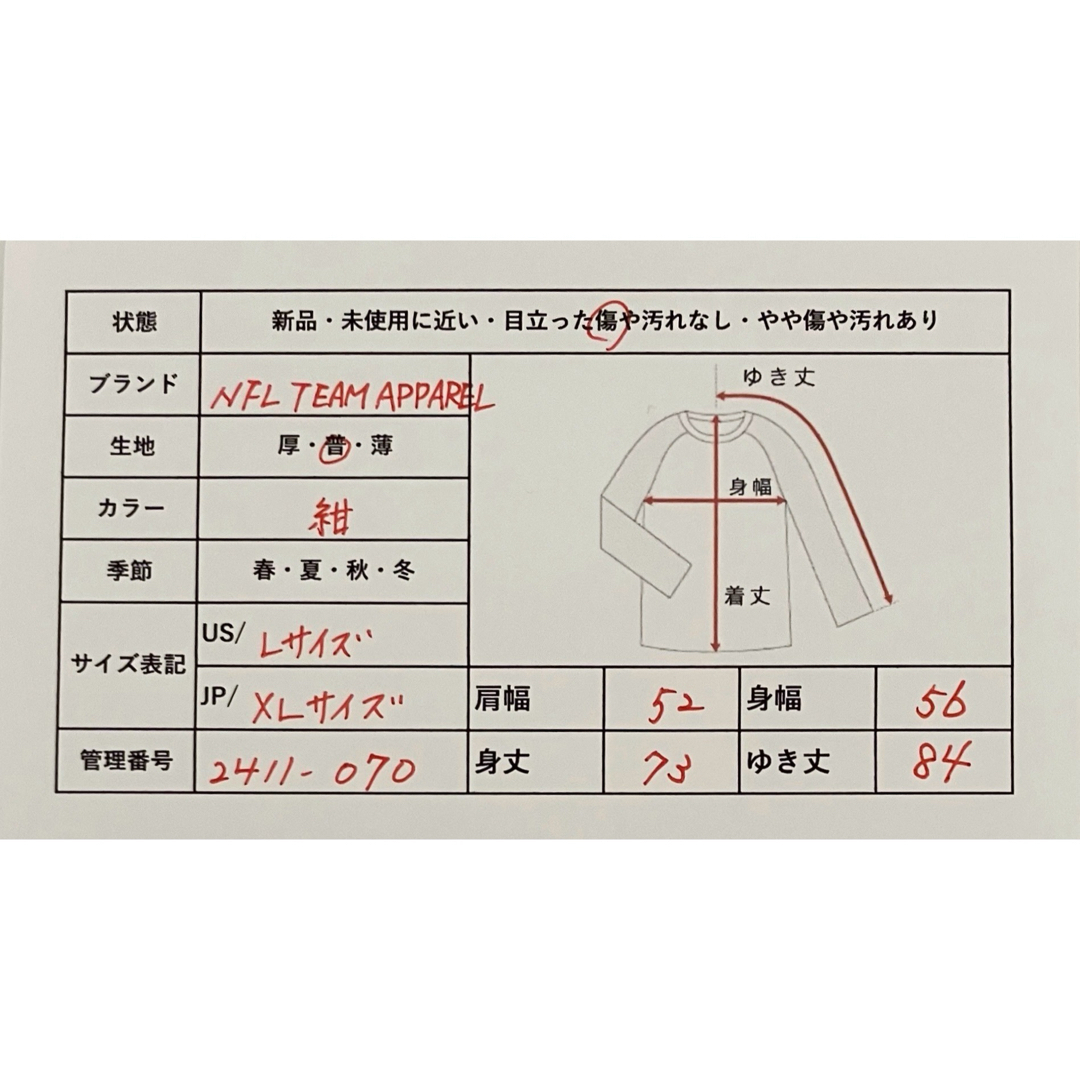 状態 新品・未使用に近い・目立った傷や汚れなし・やや傷や汚れあり
ブランド NFL TEAM APPAREL
生地 厚・普・薄
カラー 紺
季節 春・夏・秋・冬
ゆき丈
身幅
着丈
サイズ表記 US/ Lサイズ
JP/ XLサイズ 肩幅 52 身幅 56
管理番号 2411-070 身丈 73 ゆき丈 84